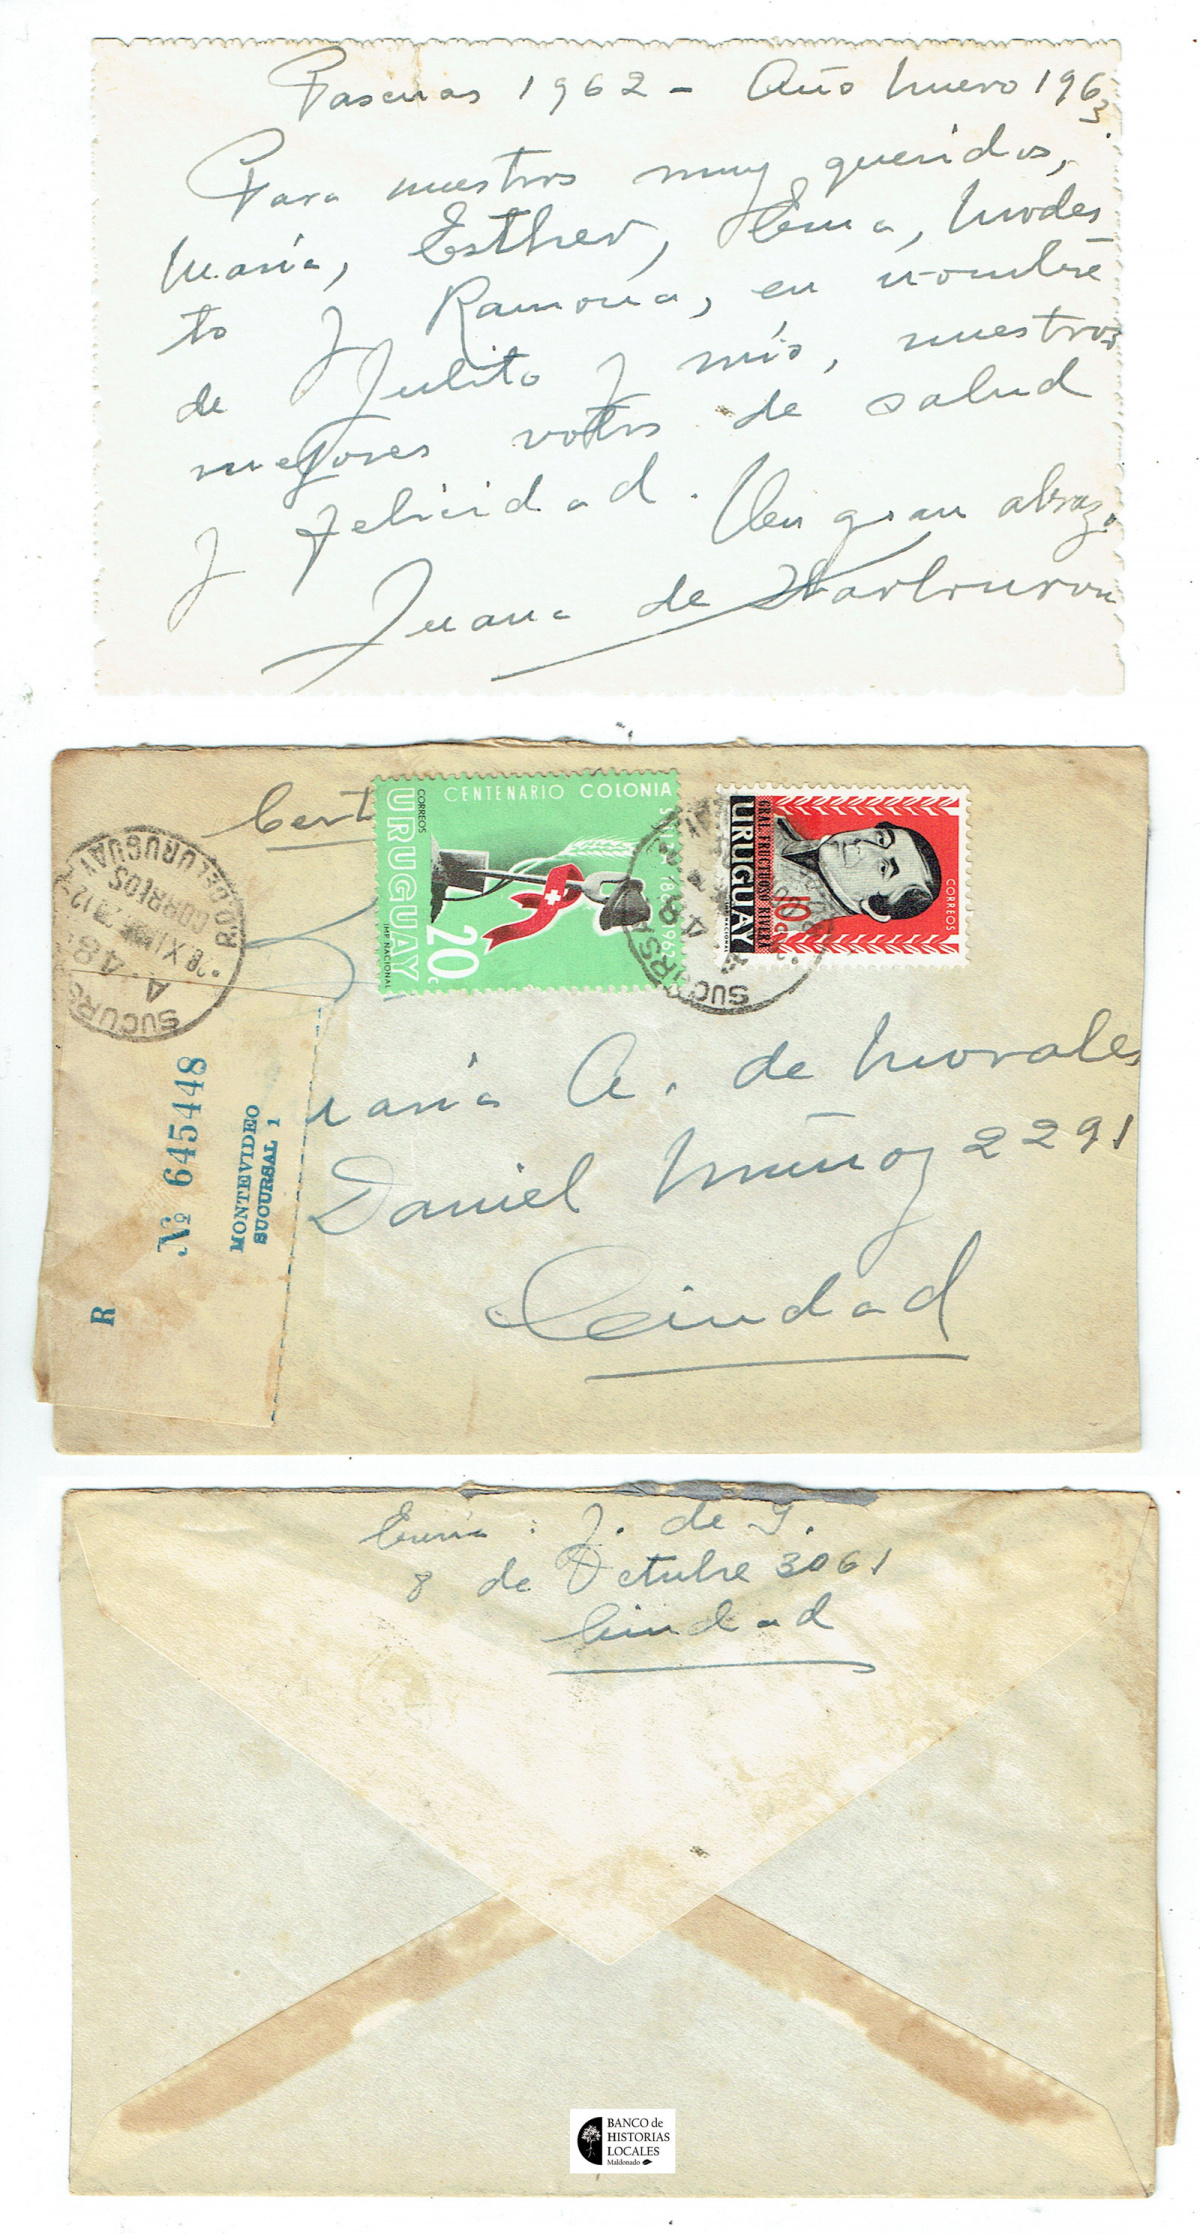 Pascuas 1962 - Año Nuevo 1963
Para nuestros muy queridos,
María, Esther, Ema, Modes
to y Ramona, en nombre
de Julito y mío, nuestros
mejores votos de salud
y felicidad. Un gran abrazo
Juana de Ibarbourou
Cert
CENTENARIO COLONIA
CORREOS
URUGUAY
IMP NACIONAL
20
1962
CORREOS
GRAL. FRUCTUOSO RIVERA
URUGUAY
10c
SUCURSAL
A 48
R.O. DEL URUGUAY
CORREOS
A 48
SUCURS
R
Nº 645448
MONTEVIDEO
SUCURSAL 1
María A. de Morales
Daniel Muñoz 2291
Ciudad
J. de I.
8 de Octubre 3061
Ciudad
BANCO de
HISTORIAS
LOCALES
Maldonado